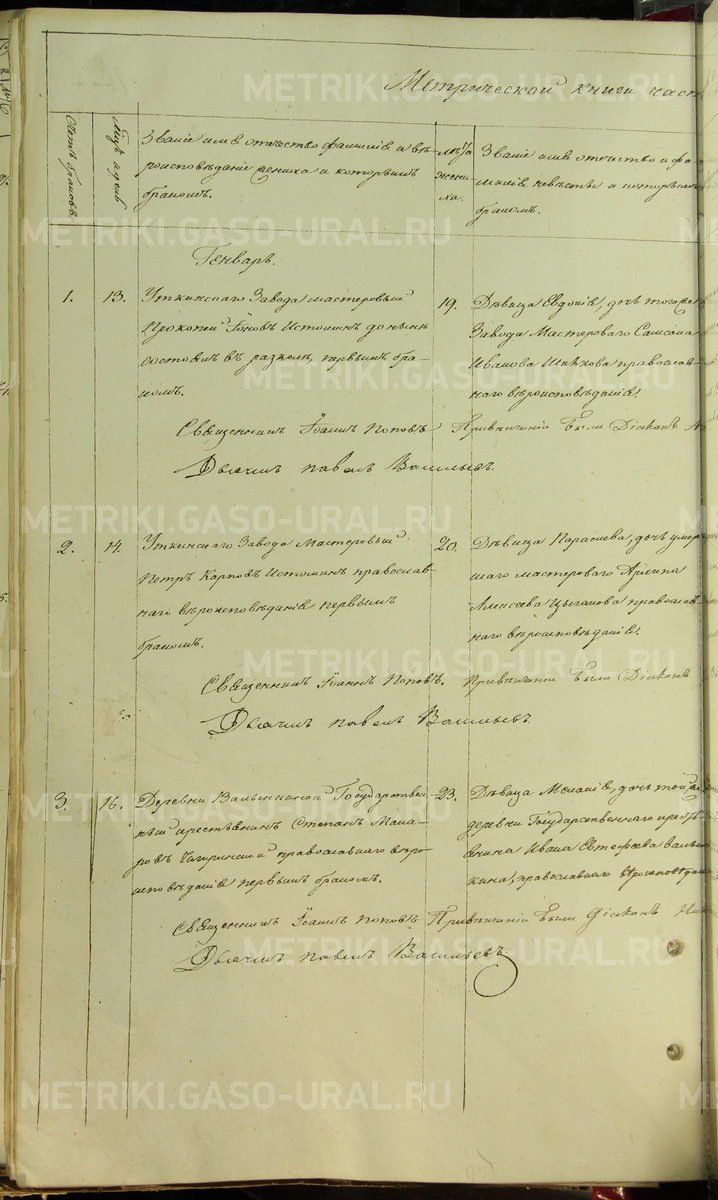 Метрической книги част
Счетъ браковъ.
Мѣсяцъ и день
Званіе имя отечество фамилія и вѣ-
роисповѣданіе жениха и которымъ
бракомъ.
лѣта
жени-
ха.
Званіе имя отечество и фа-
милія невѣсты и которымъ
бракомъ.
Генварь.
1. 13. Уткинскаго Завода мастеровый
Прокопій Іоновъ Истоминъ донынѣ
состоялъ въ расколѣ, первымъ бра-
комъ.
19. Дѣвица Евдокія, дочь тогоже
Завода Мастероваго Самсона
Иванова православ-
наго вѣроисповѣданія.
Священникъ Іоаннъ Поповъ При были Діаконъ
Дьячекъ Павелъ Васильевъ.
2. 14. Уткинскаго Завода Мастеровый
Петръ Карповъ Истоминъ православ-
наго вѣроисповѣданія первымъ
бракомъ.
20. Дѣвица Параскева, дочь умер-
шаго мастероваго
Алексѣева Цыганова православ-
наго вѣроисповѣданія.
Священникъ Іоаннъ Поповъ. При были Діаконъ
Дьячекъ Павелъ Васильевъ.
3. 16. Деревни Государствен-
ный крестьянинъ Степанъ Мака-
ровъ православнаго вѣро-
исповѣданія первымъ бракомъ.
23. Дѣвица Меланія, дочь той же
деревни Государственнаго крестья-
нина Ивана
православнаго вѣроисповѣдан
Священникъ Іоаннъ Поповъ При были Діаконъ
Дьячекъ Павелъ Васильевъ.
METRIKI.GASO-URAL.RU